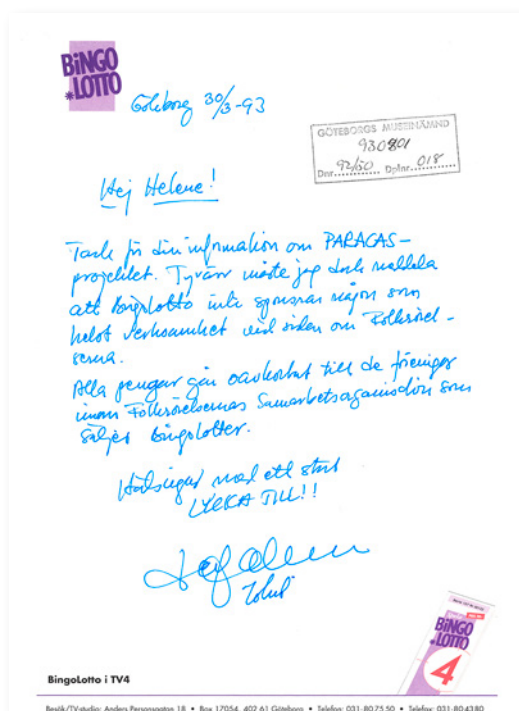 BiNGO
LOTTO
Göteborg 30/3-93
GÖTEBORGS MUSEINÄMND
930801
Dnr. 92/50 Dplnr. 018
Hej Helene!
Tack för din information om PARACAS-
projektet. Tyvärr måste jag dock meddela
att Bingolotto inte sponsrar någon som
helst verksamhet vid sidan om Folkrörel-
serna.
Alla pengar går oavkortat till de föreningar
inom Folkrörelsernas Samarbetsorganisation som
säljer Bingolotter.
Hälsningar med ett stort
LYCKA TILL!!
BiNGO
LOTTO
4
BingoLotto i TV4
Besök/TV-studio: Anders Personsgatan 18 • Box 17054, 402 61 Göteborg • Telefon: 031-80 75 50 • Telefax: 031-80 43 80